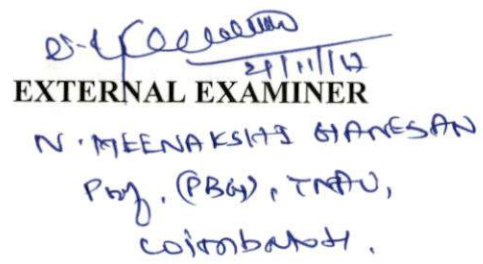 21/11/17
EXTERNAL EXAMINER
N. MEENAKSHI GANESAN
Prof. (PBG), TNAU,
Coimbatore.